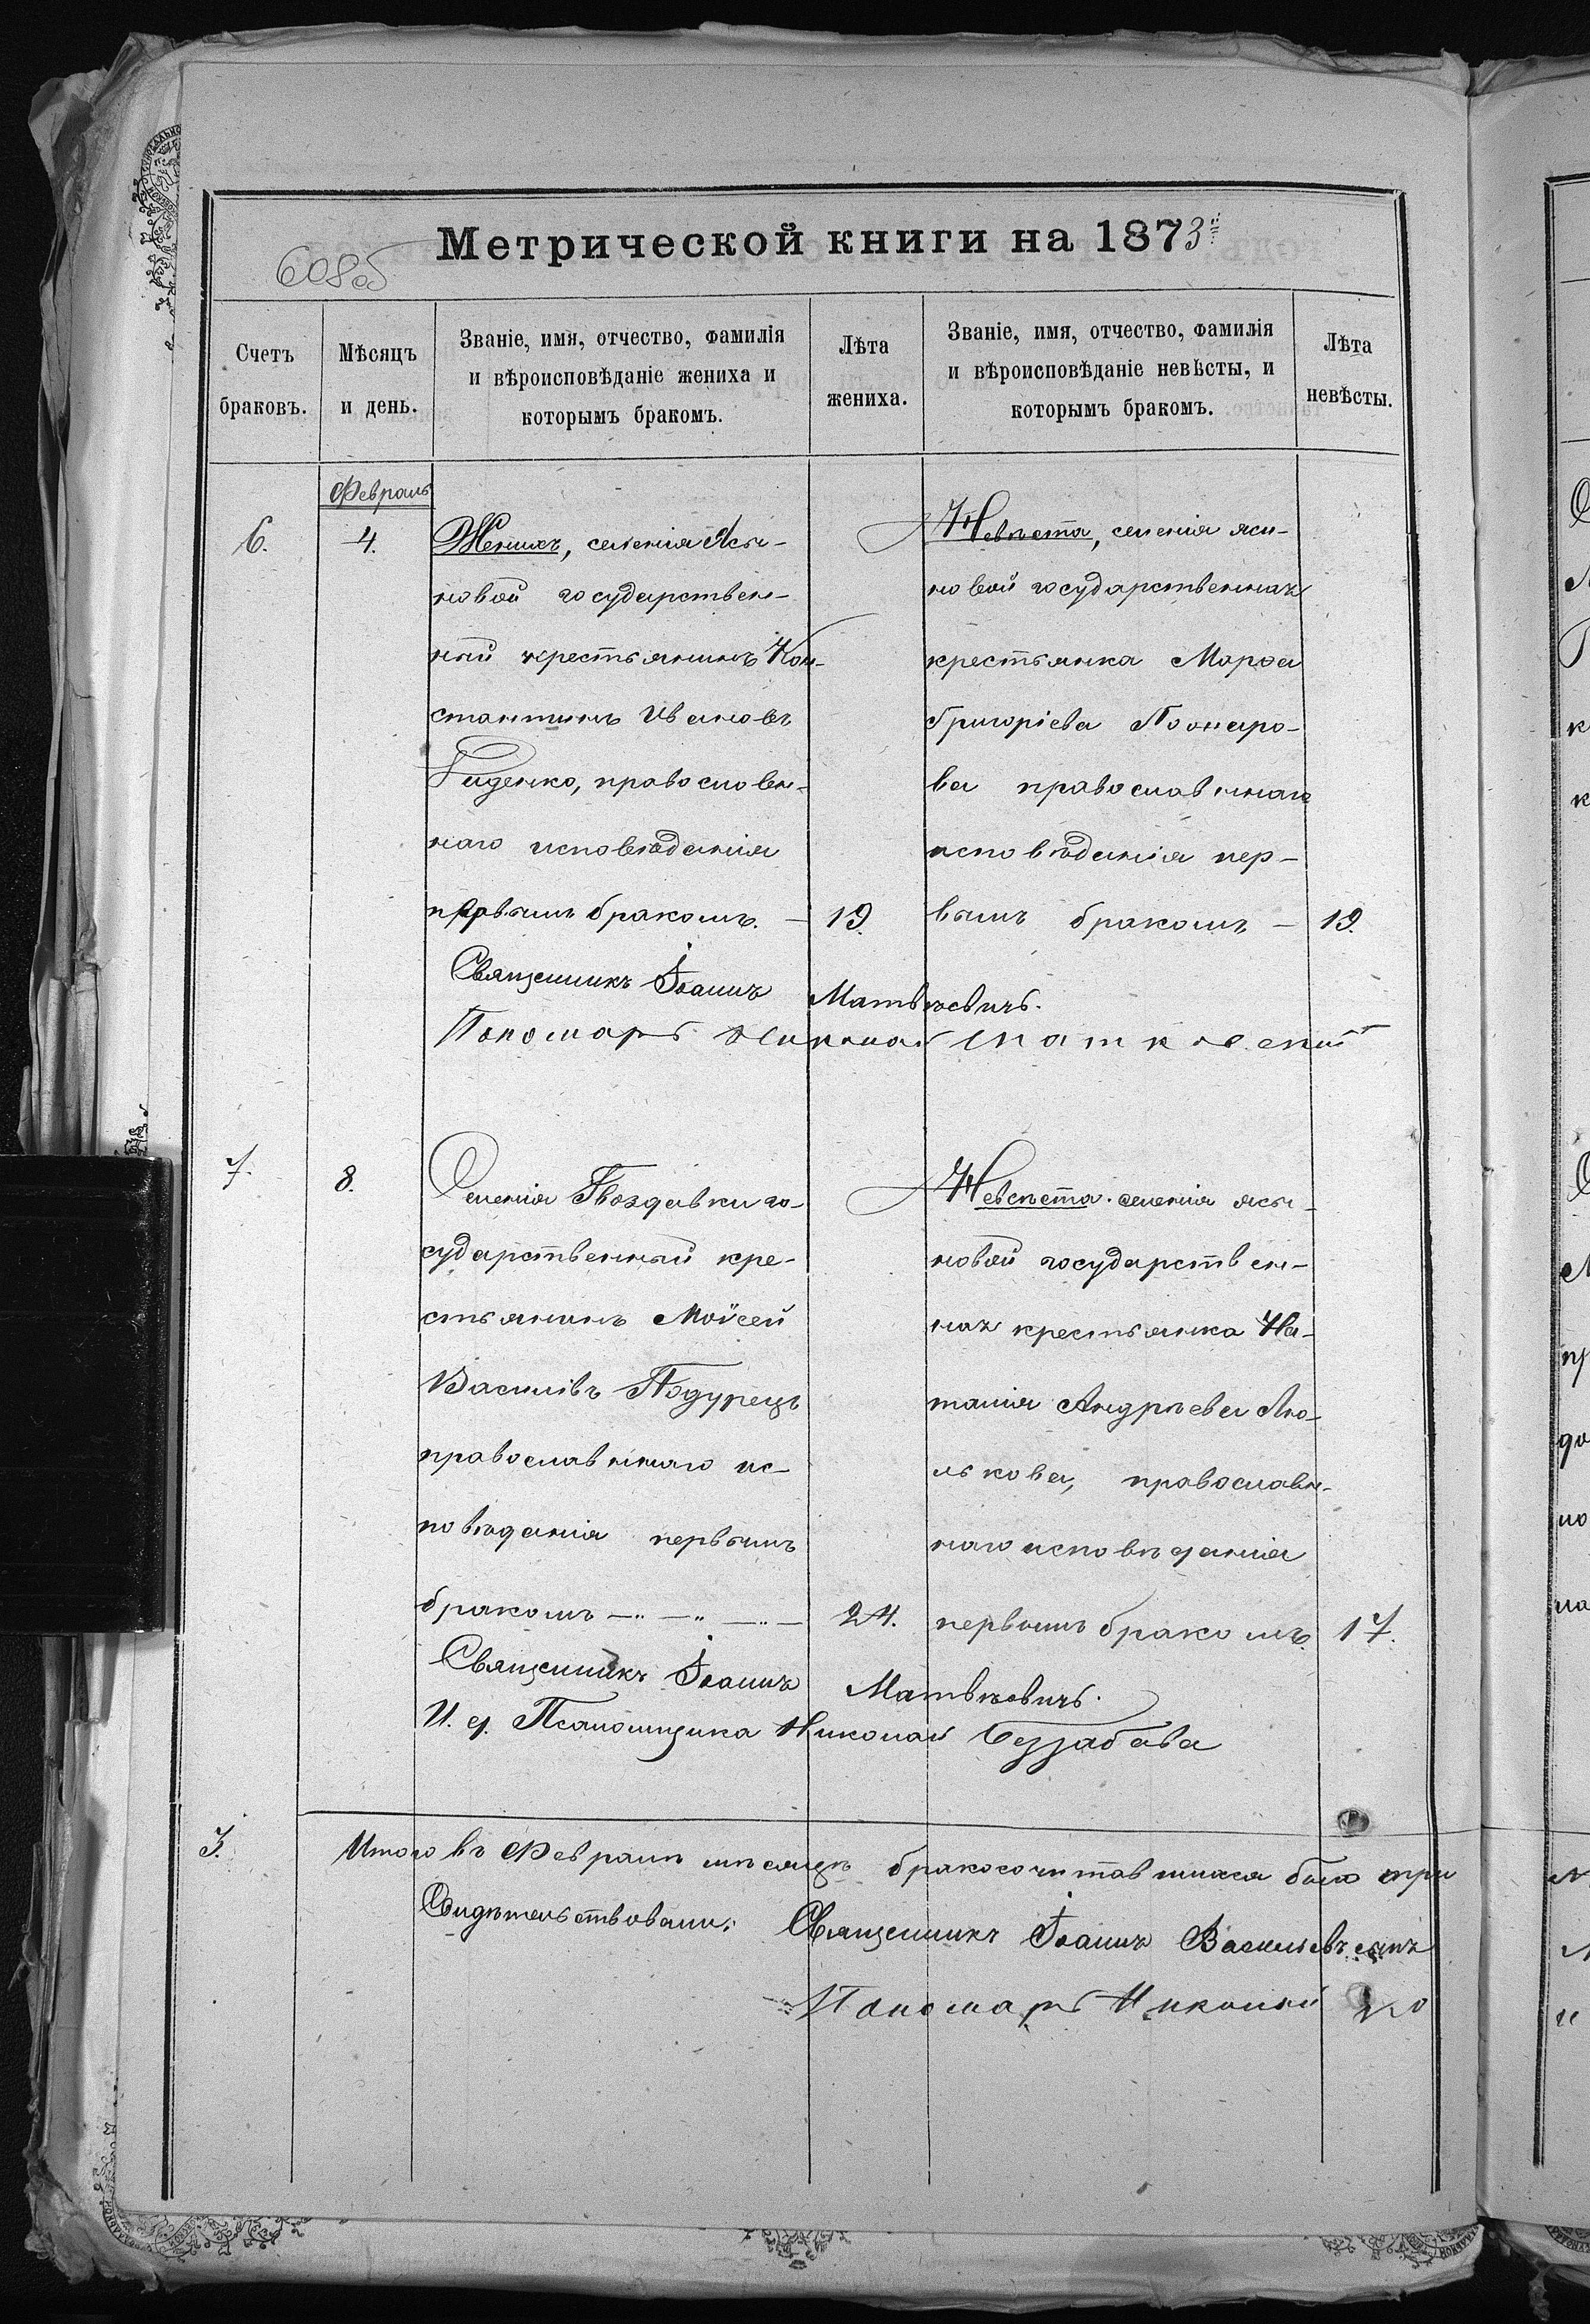 Метрической книги на 1873
608об
Счетъ браковъ.
Мѣсяцъ и день.
Званіе, имя, отчество, фамилія и вѣроисповѣданіе жениха и которымъ бракомъ.
Лѣта жениха.
Званіе, имя, отчество, фамилія и вѣроисповѣданіе невѣсты, и которымъ бракомъ.
Лѣта невѣсты.
Февраль
6.
4.
Женихъ, селенія Ясы-
новой государствен-
ный крестьянинъ Кон-
стантинъ Ивановъ
Гиденко, православ-
наго исповѣданія
первымъ бракомъ. —
19.
Невѣста, селенія Ясы-
новой государственная
крестьянка Марѳа
Григоріева Понаро-
ва православнаго
исповѣданія пер-
вымъ бракомъ —
19.
Священникъ Іоаннъ Матвѣевичъ.
Пономарь Николай
7.
8.
Селенія Гвоздавки го-
сударственный кре-
стьянинъ Мойсей
Василівъ Подурецъ
православннаго ис-
повѣданія первымъ
бракомъ —"—"—"—
24.
Невѣста. селенія Ясы-
новой государствен-
ная крестьянка На-
талія Андрѣева Лю-
лькова, православн-
наго исповѣданія
первымъ бракомъ.
17.
Священникъ Іоаннъ Матвѣевичъ.
И. д. Псаломщика Николай Беззабава
3.
Итого въ Февралѣ мѣсяцѣ бракосочитавшихся было три
Свидѣтельствовали: Священникъ Іоаннъ Васильевъ сынъ
Пономарь Николай